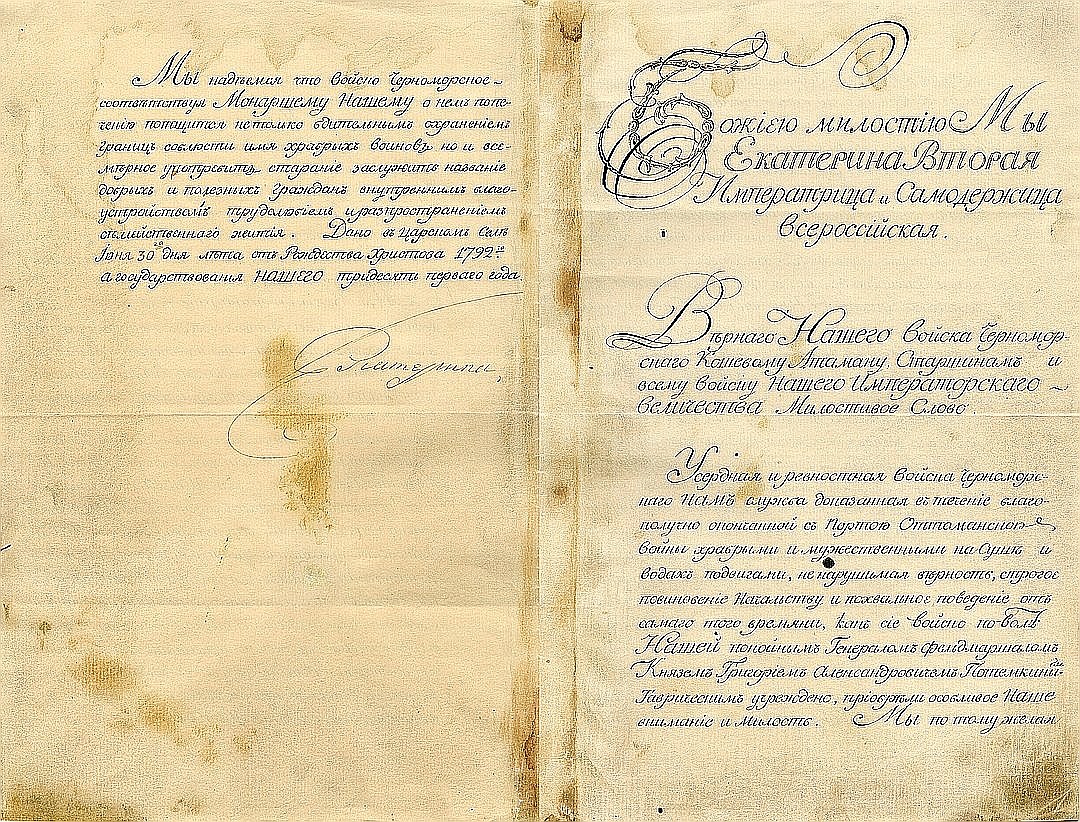 Мы надѣемся что войско Черноморское
соотвѣтствуя Монаршему Нашему о немъ попе-
ченію потщится не только бдительнымъ охраненіемъ
границъ соблюсти имя храбрыхъ воиновъ но и все-
мѣрное употребитъ стараніе заслужить названіе
добрыхъ и полезныхъ гражданъ внутреннимъ благо-
устройствомъ трудолюбіемъ и распространеніемъ
семѣйственнаго житія. Дано въ Царскомъ Селѣ
Іюня 30го дня лѣта отъ Рождества Христова 1792го
а государствованія НАШЕГО тридесять перваго года.
Екатерина
Божіею милостію Мы
Екатерина Вторая
Императрица и Самодержица
Всероссійская.
Вѣрнаго Нашего войска Черномор-
скаго Кошевому Атаману, Старшинамъ и
всему войску Нашего Императорскаго
величества Милостивое Слово.
Усердная и ревностная войска Черномор-
скаго НАМЪ служба доказанная въ теченіе благо-
получно оконченной съ Портою Оттоманскою
войны храбрыми и мужественными на Сушѣ и
водахъ подвигами, не нарушимая вѣрность, строгое
повиновеніе Начальству и похвальное поведеніе отъ
самаго того времяни, какъ сіе войско по волѣ
Нашей покойнымъ Генераломъ фельдмаршаломъ
Княземъ Григоріемъ Александровичемъ Потемкинымъ
Таврическимъ учреждено, пріобрѣли особливое Наше
вниманіе и милость. Мы по тому желая